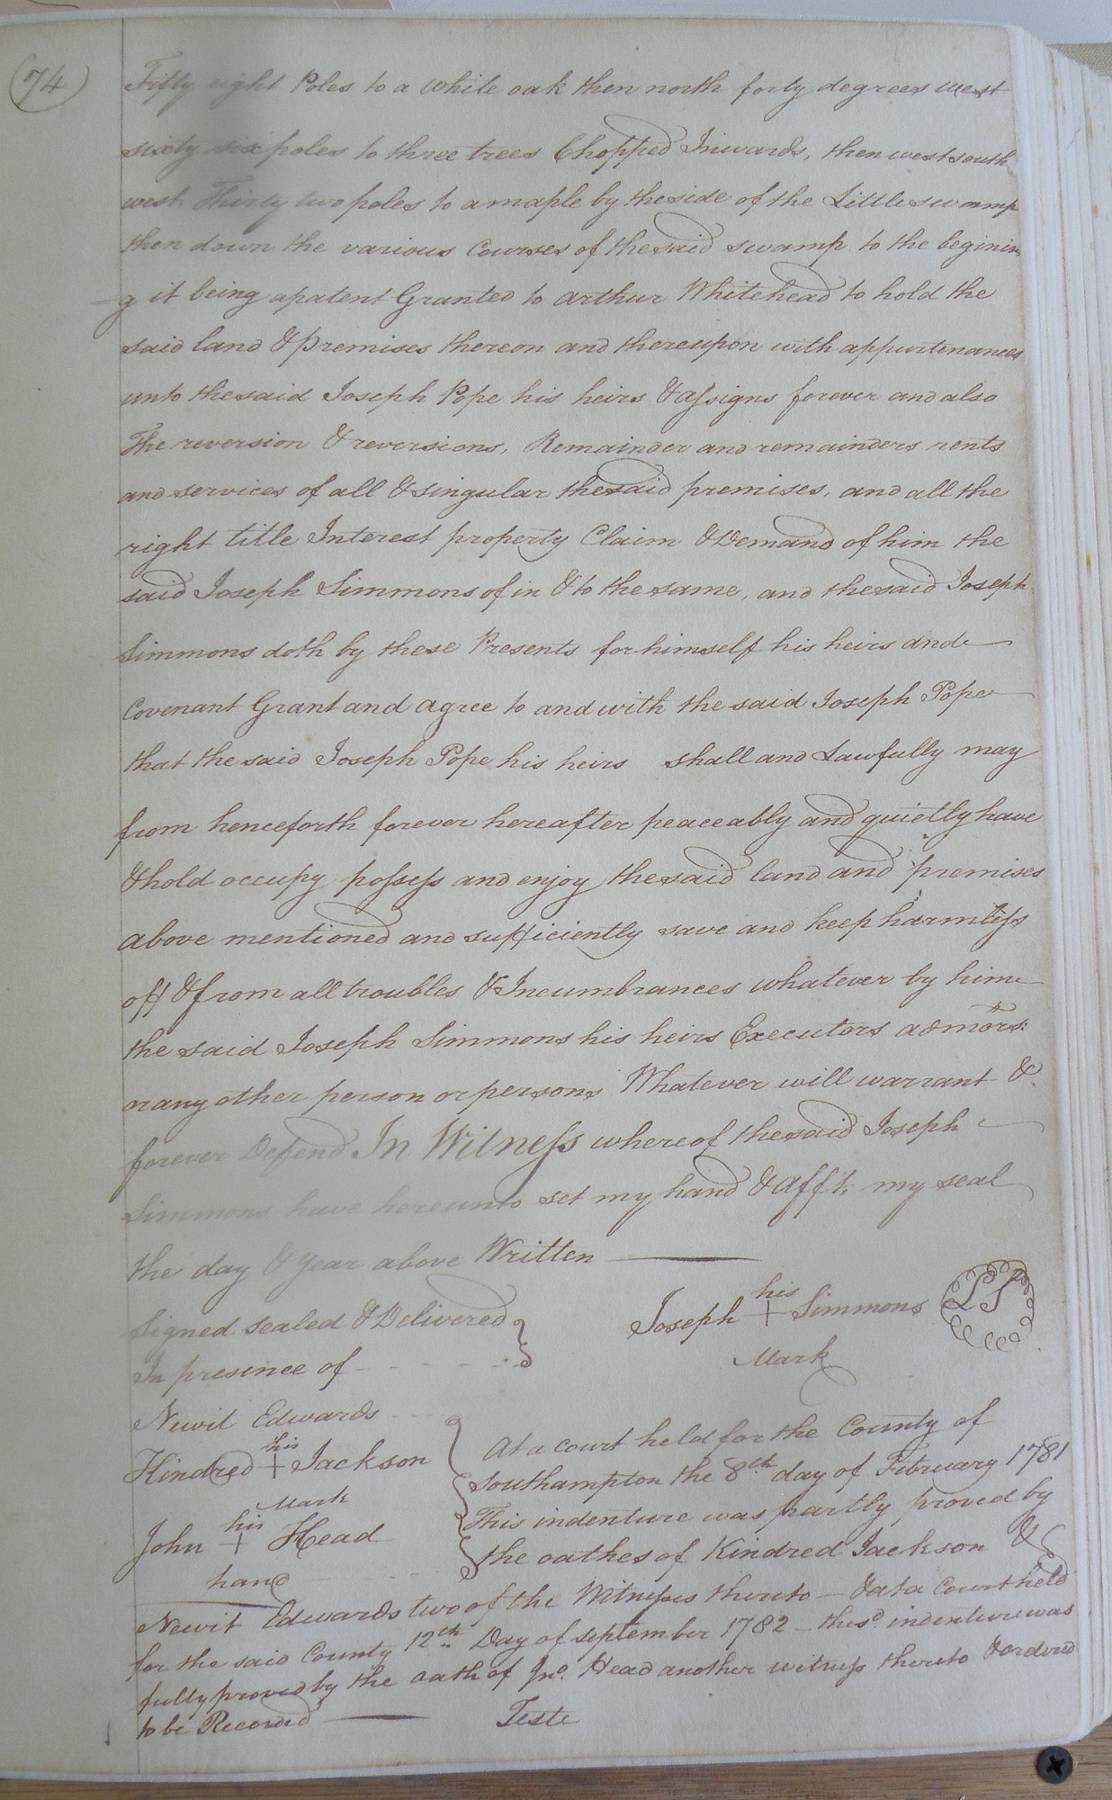 74
Fifty eight Poles to a white oak then north forty degrees west
sixty six poles to three trees Chopped Inwards, then west south
west Thirty two poles to a maple by the side of the Little swamp
then down the various Courses of the said swamp to the beginin
g it being a patent Granted to arthur Whitehead to hold the
said land & premises thereon and thereupon with appurtinances
unto the said Joseph Pope his heirs & assigns forever and also
The reversion & reversions, Remainder and remainders rents
and services of all & singular the said premises, and all the
right title Interest property Claim & Demand of him the
said Joseph Simmons of in & to the same, and the said Joseph
Simmons doth by these Presents for himself his heirs and
Covenant Grant and agree to and with the said Joseph Pope
that the said Joseph Pope his heirs shall and Lawfully may
from henceforth forever hereafter peaceably and quietly have
& hold occupy possess and enjoy the said land and premises
above mentioned and sufficiently save and keep harmless
off & from all troubles & Incumbrances whatever by him
the said Joseph Simmons his heirs Executors admors.
or any other person or persons Whatever will warrant &
forever Defend In Witness whereof the said Joseph
Simmons have hereunto set my hand & afft. my seal
the day & year above Written
Signed sealed & Delivered
In presence of
Joseph his + Simmons LS
Mark
Newit Edwards
Kindred his + Jackson
Mark
John his + Head
hand
At a court held for the County of
Southampton the 8th day of February 1781
This indenture was partly proved by
the oathes of Kindred Jackson &
Newit Edwards two of the Witnesses thereto – & at a Court held
for the said County 12th Day of september 1782 – this sd. indenture was
fully proved by the oath of Jno. Head another witness thereto & ordered
to be Recorded
Teste